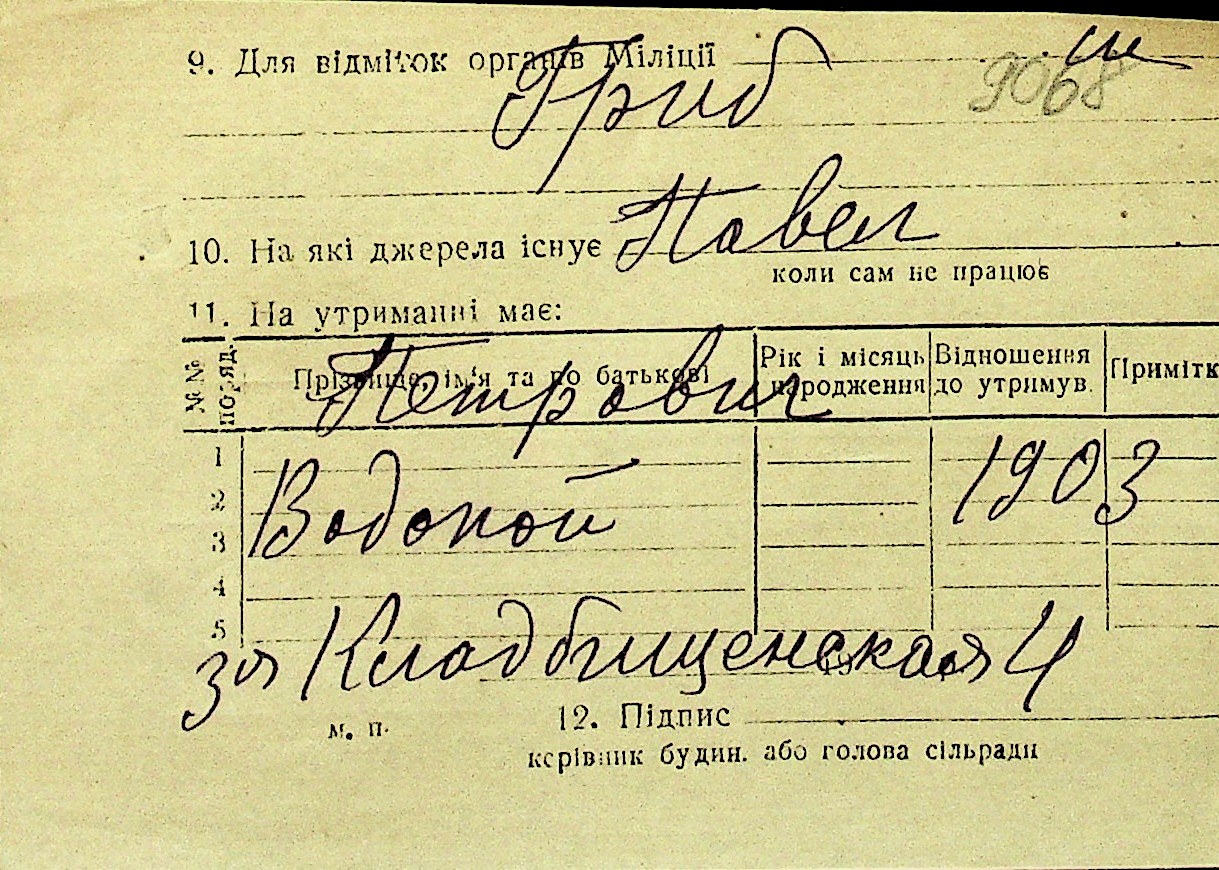 9. Для відміток органів Міліції
Гриб 9068
10. На які джерела існує Павел
коли сам не працює
11. На утриманні має:
№№ поряд. Прізвище, ім'я та по батькові Рік і місяць народження Відношення до утримув. Примітк
Петрович
1
2
3
4
5
Водопой 1903
3я Кладбищенская 4
19
м. п. 12. Підпис
керівник будин. або голова сільради